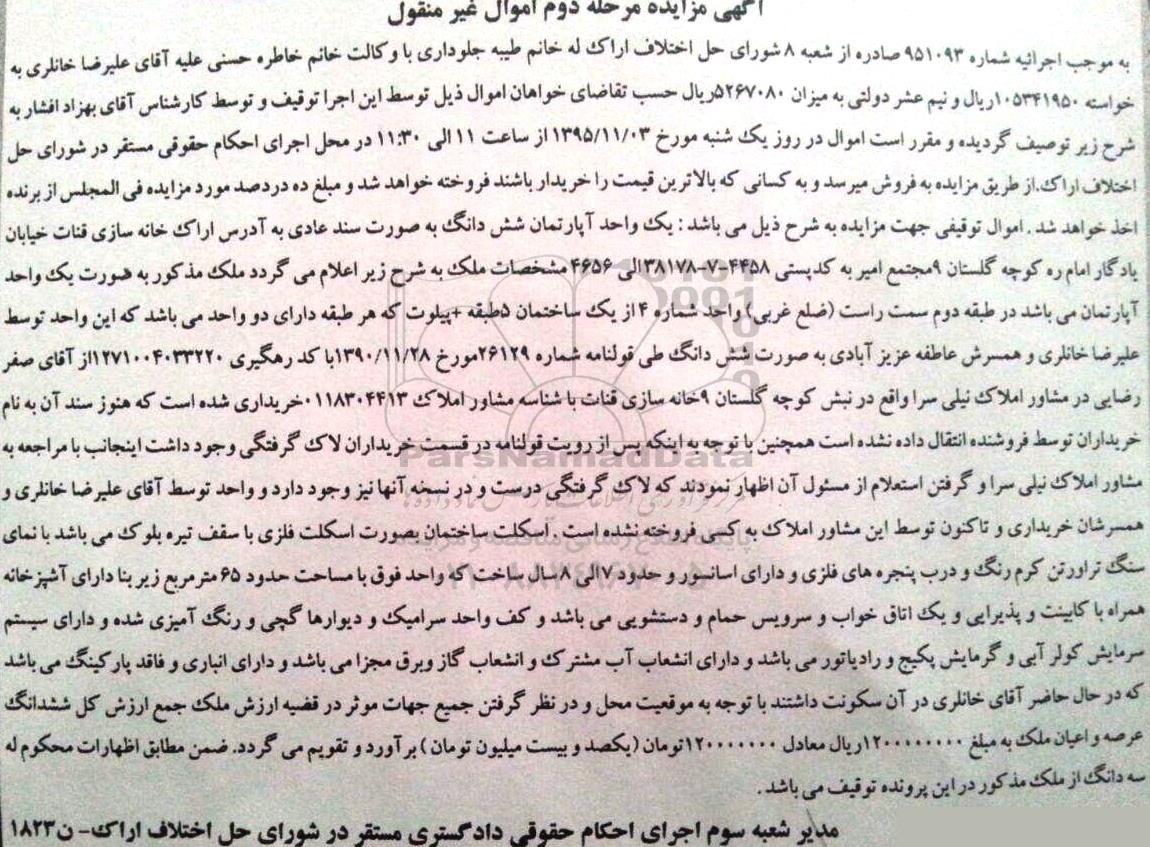 آگهی مزایده مرحله دوم اموال غیر منقول
به موجب اجرائیه شماره ۹۵۱۰۹۳ صادره از شعبه ۸ شورای حل اختلاف اراک له خانم طیبه جلوداری با وکالت خانم خاطره حسنی علیه آقای علیرضا خانلری به
خواسته ۱۰۵۳۴۱۹۵۰ریال و نیم عشر دولتی به میزان ۵۲۶۷۰۸۰ریال حسب تقاضای خواهان اموال ذیل توسط این اجرا توقیف و توسط کارشناس آقای بهزاد افشار به
شرح زیر توصیف گردیده و مقرر است اموال در روز یک شنبه مورخ ۱۳۹۵/۱۱/۰۳ از ساعت ۱۱ الی ۱۱:۳۰ در محل اجرای احکام حقوقی مستقر در شورای حل
اختلاف اراک.از طریق مزایده به فروش میرسد و به کسانی که بالاترین قیمت را خریدار باشند فروخته خواهد شد و مبلغ ده درصد مورد مزایده فی المجلس از برنده
اخذ خواهد شد . اموال توقیفی جهت مزایده به شرح ذیل می باشد : یک واحد آپارتمان شش دانگ به صورت سند عادی به آدرس اراک خانه سازی قنات خیابان
یادگار امام ره کوچه گلستان ۹مجتمع امیر به کدپستی ۴۴۵۸-۷-۳۸۱۷۸الی ۴۶۵۶ مشخصات ملک به شرح زیر اعلام می گردد ملک مذکور به صورت یک واحد
آپارتمان می باشد در طبقه دوم سمت راست (ضلع غربی) واحد شماره ۴ از یک ساختمان ۵طبقه +پیلوت که هر طبقه دارای دو واحد می باشد که این واحد توسط
علیرضا خانلری و همسرش عاطفه عزیز آبادی به صورت شش دانگ طی قولنامه شماره ۲۶۱۲۹مورخ ۱۳۹۰/۱۱/۲۸با کد رهگیری ۱۲۷۱۰۰۴۰۳۳۲۲۰از آقای صفر
رضایی در مشاور املاک نیلی سرا واقع در نبش کوچه گلستان ۹خانه سازی قنات با شناسه مشاور املاک ۰۱۱۸۳۰۴۴۱۳خریداری شده است که هنوز سند آن به نام
خریداران توسط فروشنده انتقال داده نشده است همچنین با توجه به اینکه پس از رویت قولنامه در قسمت خریداران لاک گرفتگی وجود داشت اینجانب با مراجعه به
مشاور املاک نیلی سرا و گرفتن استعلام از مسئول آن اظهار نمودند که لاک گرفتگی درست و در نسخه آنها نیز وجود دارد و واحد توسط آقای علیرضا خانلری و
همسرشان خریداری و تاکنون توسط این مشاور املاک به کسی فروخته نشده است . اسکلت ساختمان بصورت اسکلت فلزی با سقف تیره بلوک می باشد با نمای
سنگ تراورتن کرم رنگ و درب پنجره های فلزی و دارای اسانسور و حدود ۷الی ۸ سال ساخت که واحد فوق با مساحت حدود ۶۵ مترمربع زیر بنا دارای آشپزخانه
همراه با کابینت و پذیرایی و یک اتاق خواب و سرویس حمام و دستشویی می باشد و کف واحد سرامیک و دیوارها گچی و رنگ آمیزی شده و دارای سیستم
سرمایش کولر آبی و گرمایش پکیج و رادیاتور می باشد و دارای انشعاب آب مشترک و انشعاب گاز وبرق مجزا می باشد و دارای انباری و فاقد پارکینگ می باشد
که در حال حاضر آقای خانلری در آن سکونت داشتند با توجه به موقعیت محل و در نظر گرفتن جمیع جهات موثر در قضیه ارزش ملک جمع ارزش کل ششدانگ
عرصه و اعیان ملک به مبلغ ۱۲۰۰۰۰۰۰۰۰ریال معادل ۱۲۰۰۰۰۰۰۰تومان (یکصد و بیست میلیون تومان ) برآورد و تقویم می گردد. ضمن مطابق اظهارات محکوم له
سه دانگ از ملک مذکور در این پرونده توقیف می باشد .
مدیر شعبه سوم اجرای احکام حقوقی دادگستری مستقر در شورای حل اختلاف اراک- ن۱۸۲۳
ParsNamadData